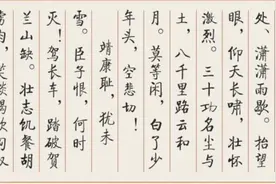 处、潇潇雨歇。抬
眼，仰天长啸，壮怀
激烈。三十功名尘与
土，八千里路云和
月。莫等闲，白了少
年头，空悲切！
靖康耻，犹未
雪。臣子恨，何时
灭！驾长车，踏破贺
兰山缺。壮志饥餐胡